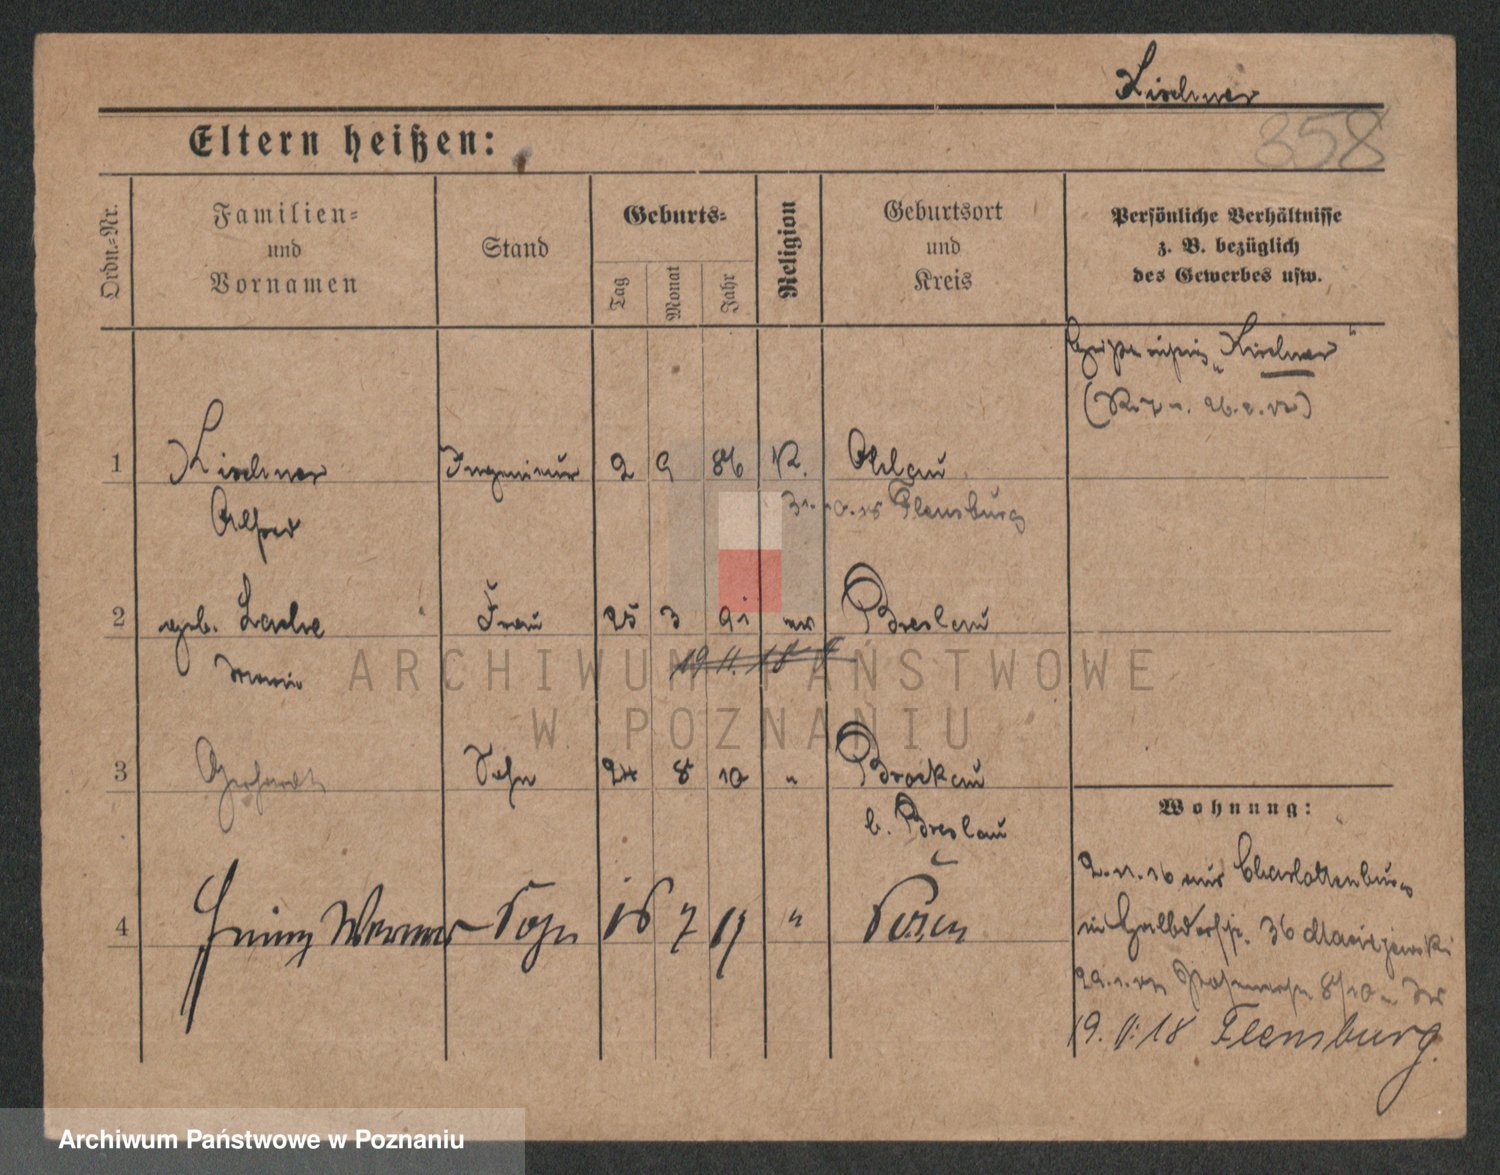 Kirchner
358
Eltern heißen:
Ordn.=Nr.
Familien=
und
Vornamen
Stand
Geburts=
Tag
Monat
Jahr
Religion
Geburtsort
und
Kreis
Persönliche Verhältnisse
z. B. bezüglich
des Gewerbes usw.
"Kirchner"
1 Kirchner Ingenieur 2 9 86 K. Ohlau
Alfred Flensburg
2 geb. Frau 25 3 91 Breslau
Marie 19 11. 18
3 Gerhardt Sohn 24 8 10 " Brockau
b. Breslau
Wohnung:
4 Henning Werner Sohn 16 7 17 " Posen
2.11.16 aus Charlottenburg
36
8/10
19. 11. 18 Flensburg.
ARCHIWUM PAŃSTWOWE
W POZNANIU
Archiwum Państwowe w Poznaniu